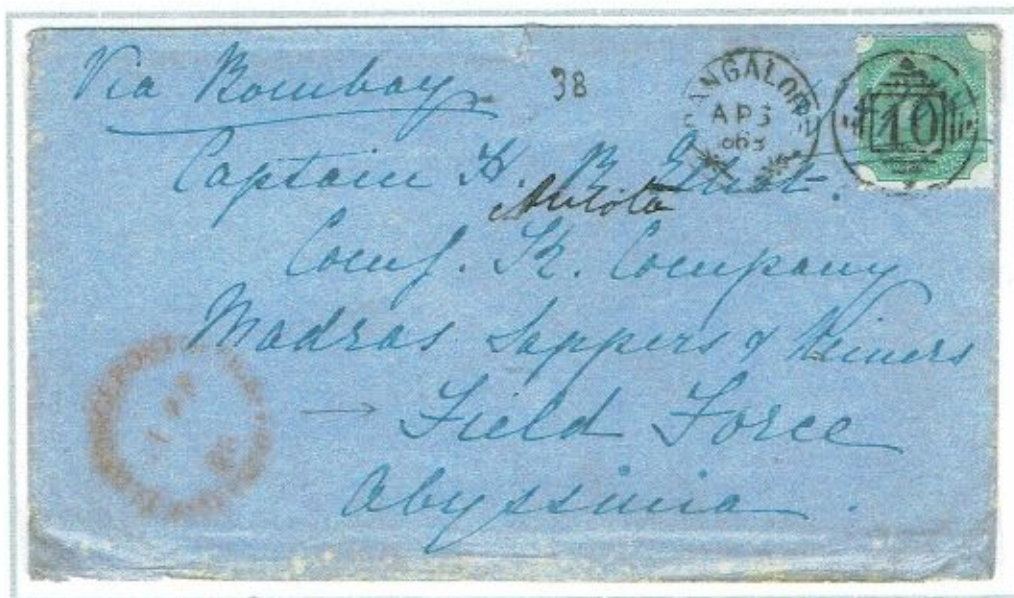 Via Bombay
38
BANGALORE
AP 6
868
10
Captain H. B.
Comg. K. Company
Madras Sappers & Miners
Field Force
Abyssinia.